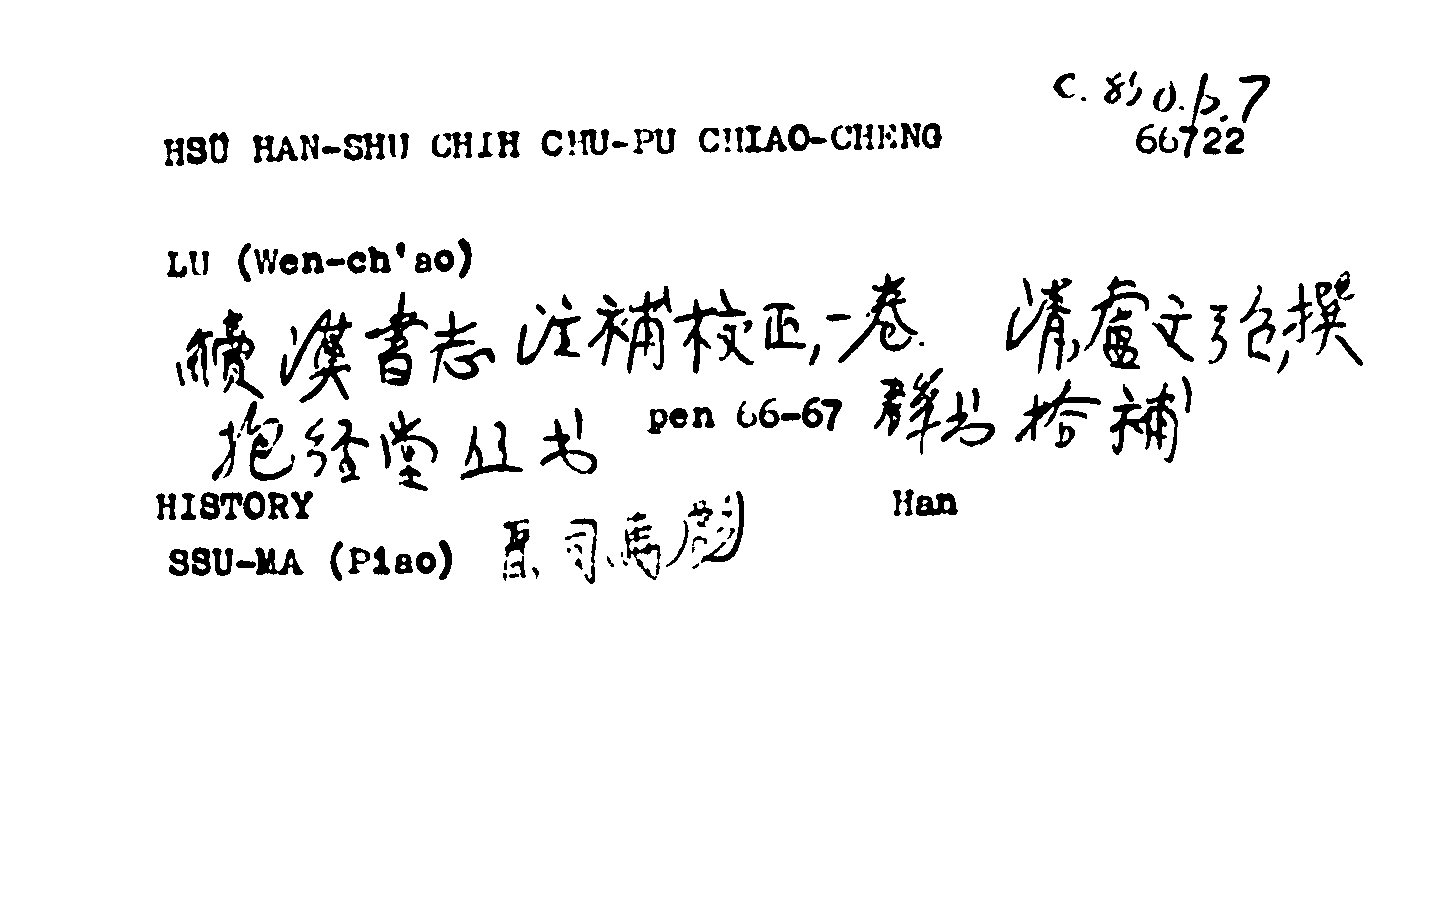 C. 850.b.7
HSÜ HAN-SHU CHIH CHU-PU CHIAO-CHENG
66722
LU (Wen-ch'ao)
續漢書志注補校正,一卷. 清,盧文弨,撰
抱经堂丛书 pen 66-67 群书拾補
HISTORY Han
SSU-MA (Piao) 司馬彪